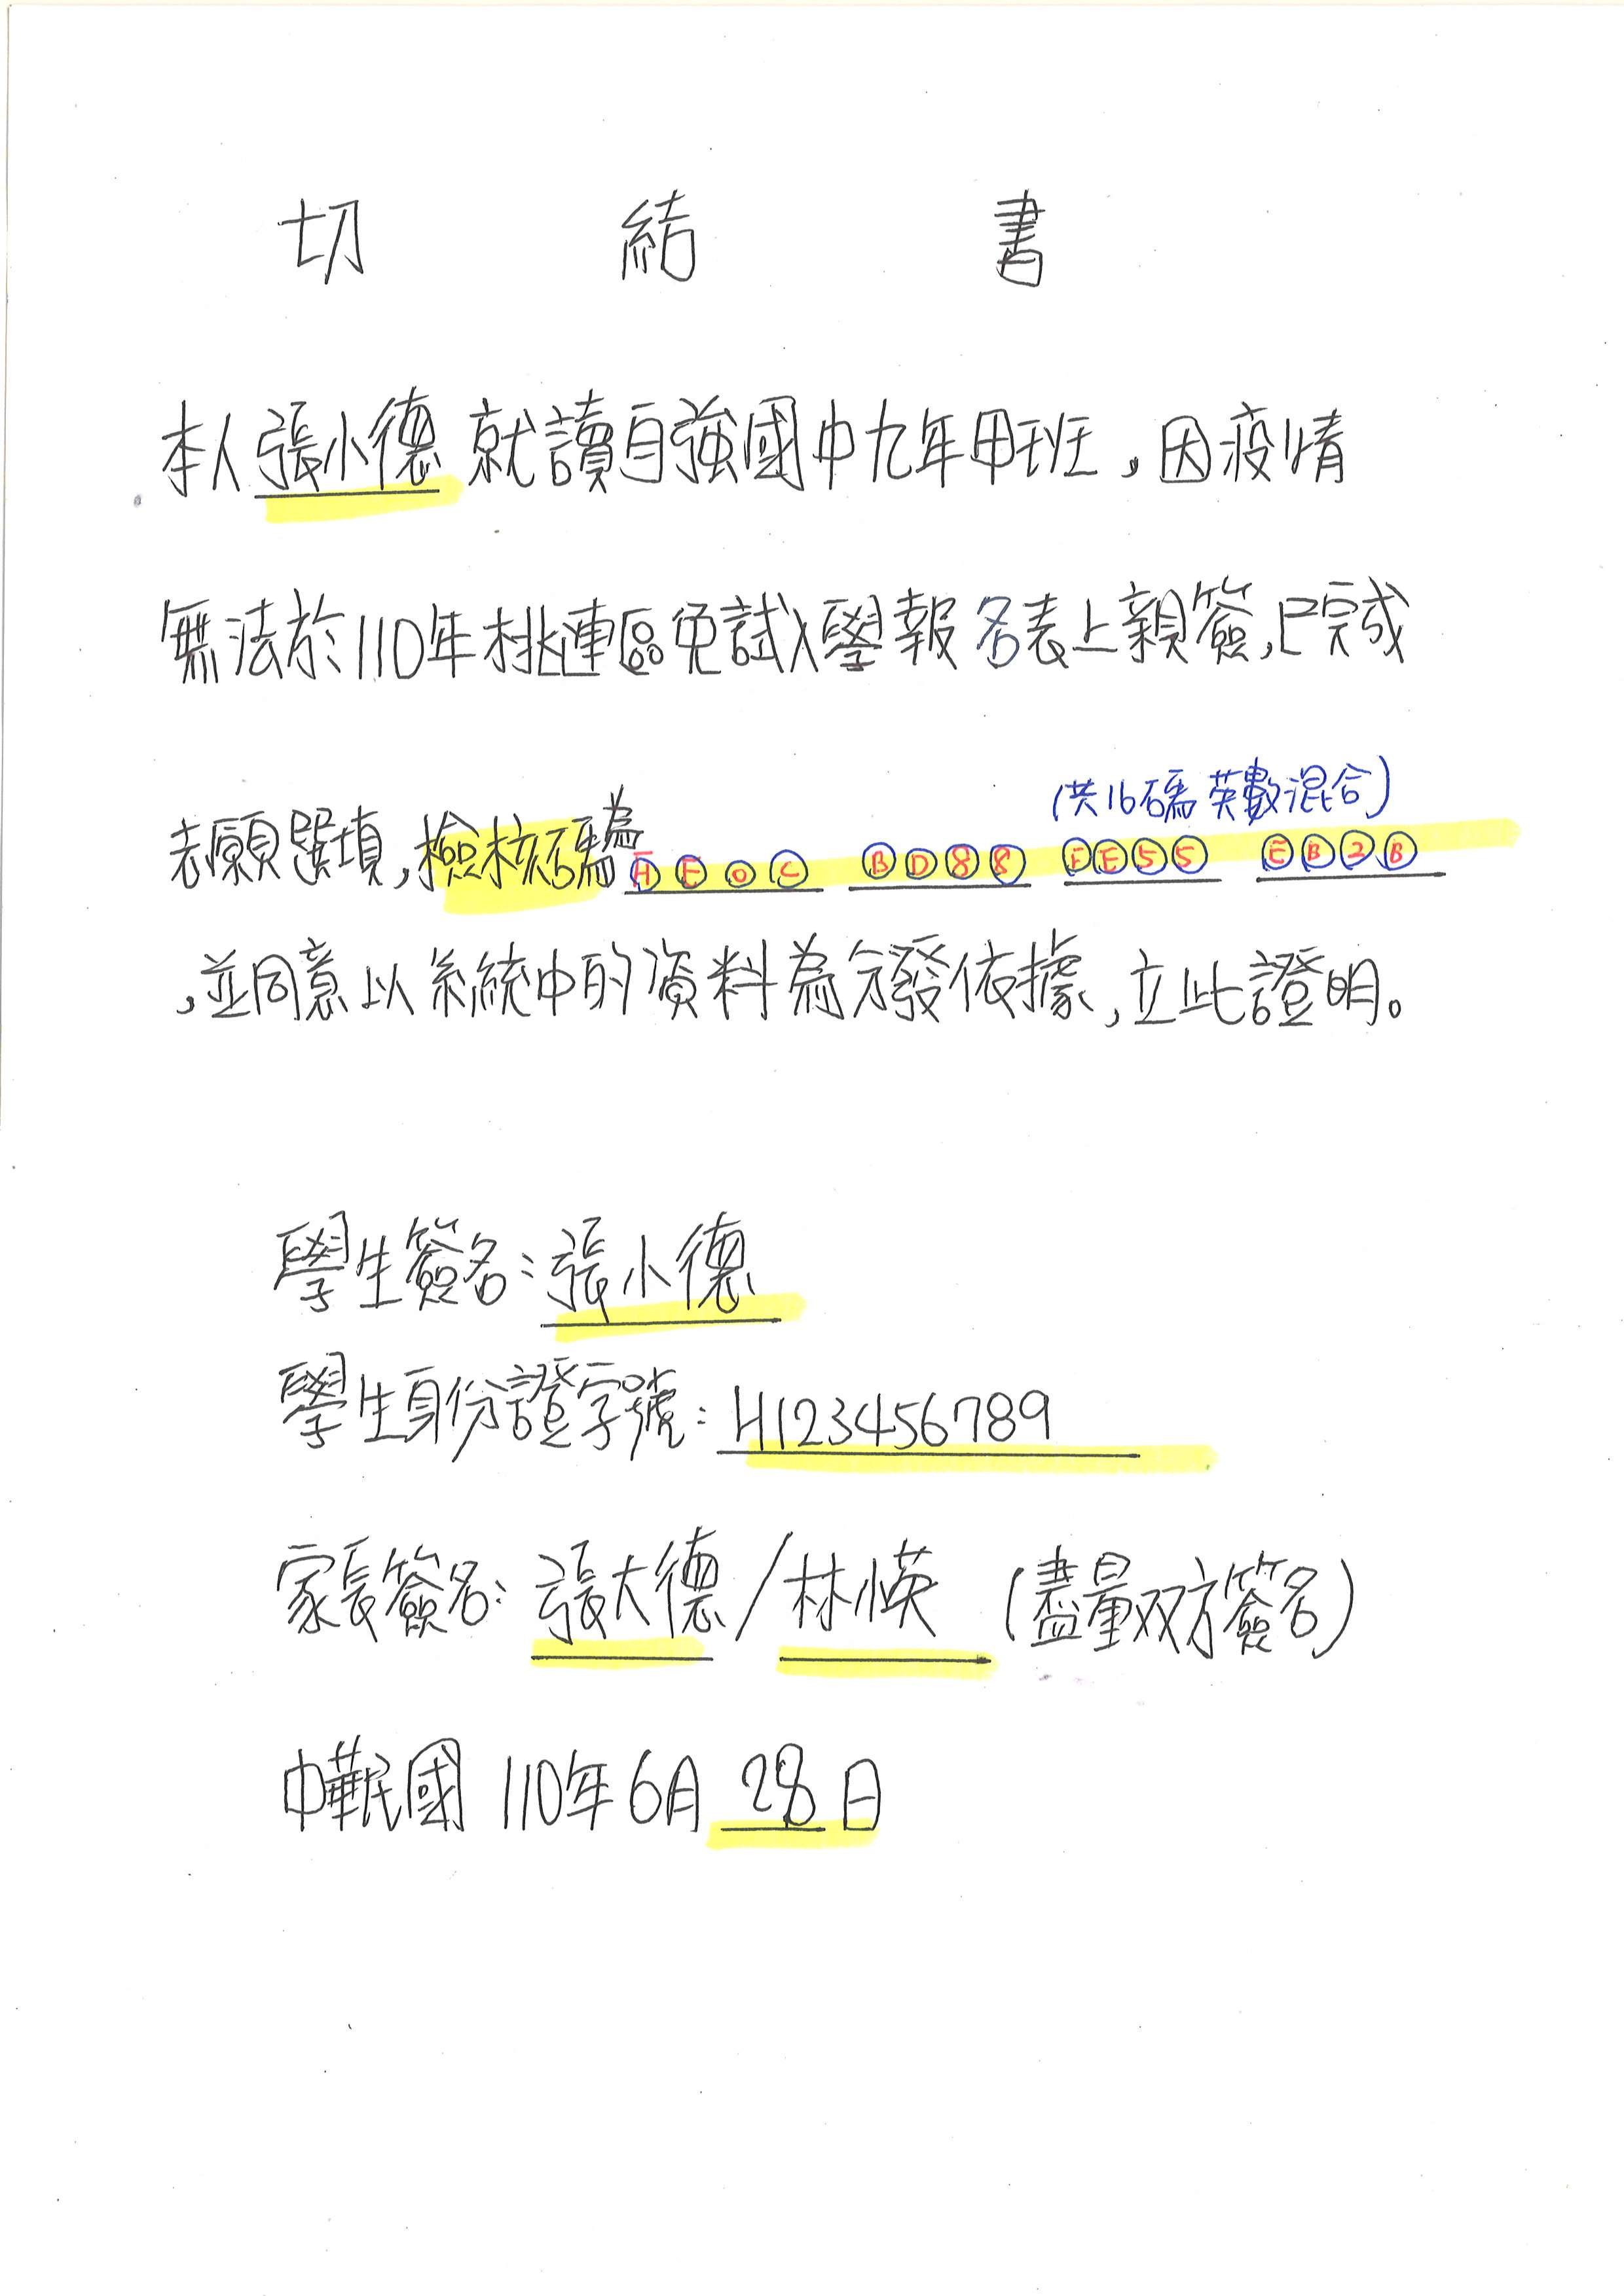 切結書
本人張小德就讀自強國中九年甲班，因疫情
無法於110年桃連區免試入學報名表上親簽，已完成
(共16碼英數混合)
志願選填，檢核碼為 AE0C BD88 EE55 EB2B
，並同意以系統中的資料為分發依據，立此證明。
學生簽名：張小德
學生身份證字號：H123456789
家長簽名：張大德/林愫英 (盡量双方簽名)
中華民國110年6月28日